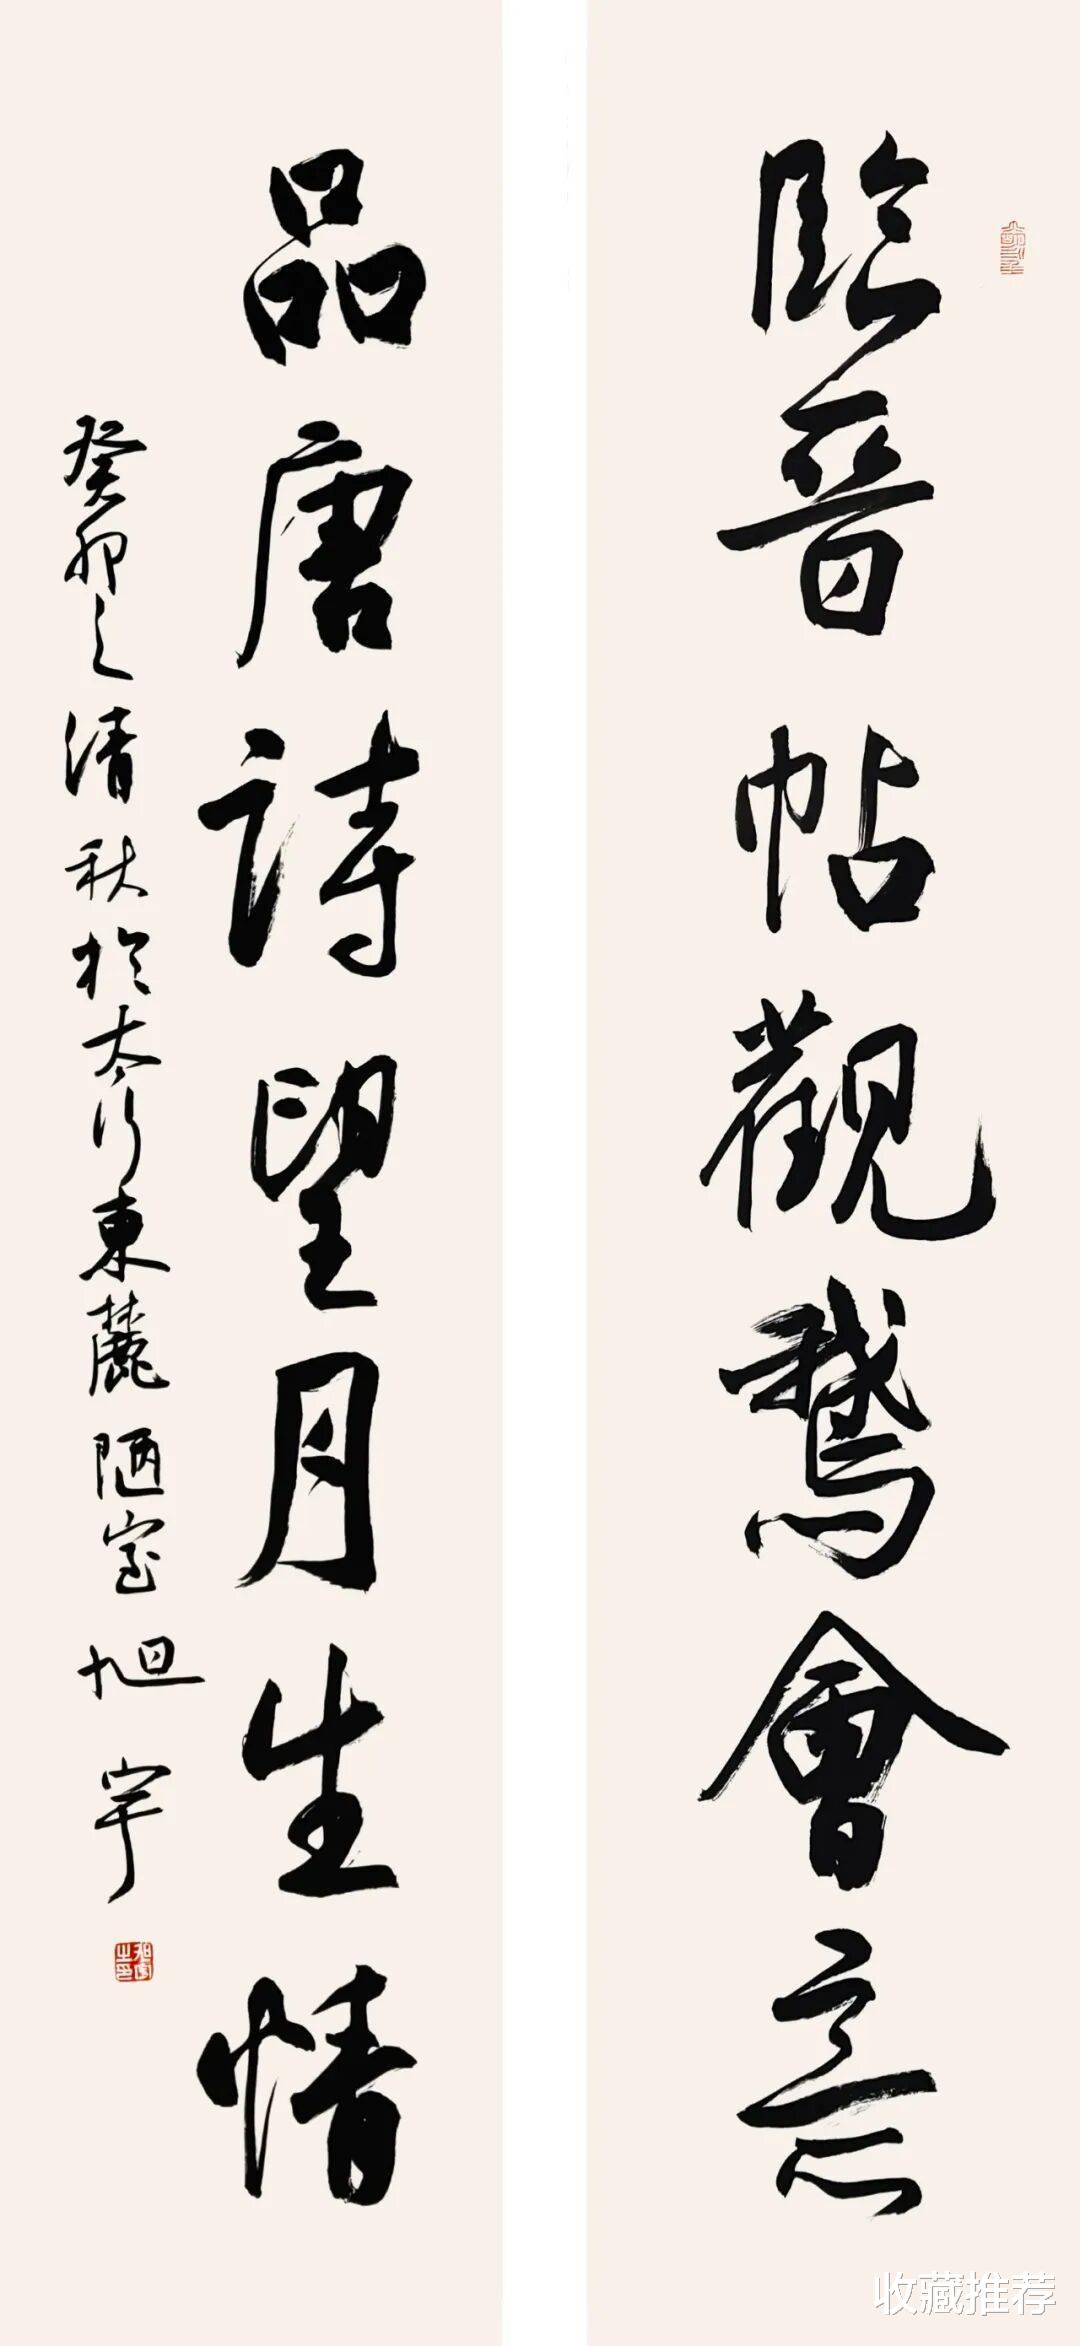 臨晉帖觀鵞會意
品唐詩望月生情
癸卯之清秋於太行東麓陋室旭宇
旭宇之印
收藏推荐